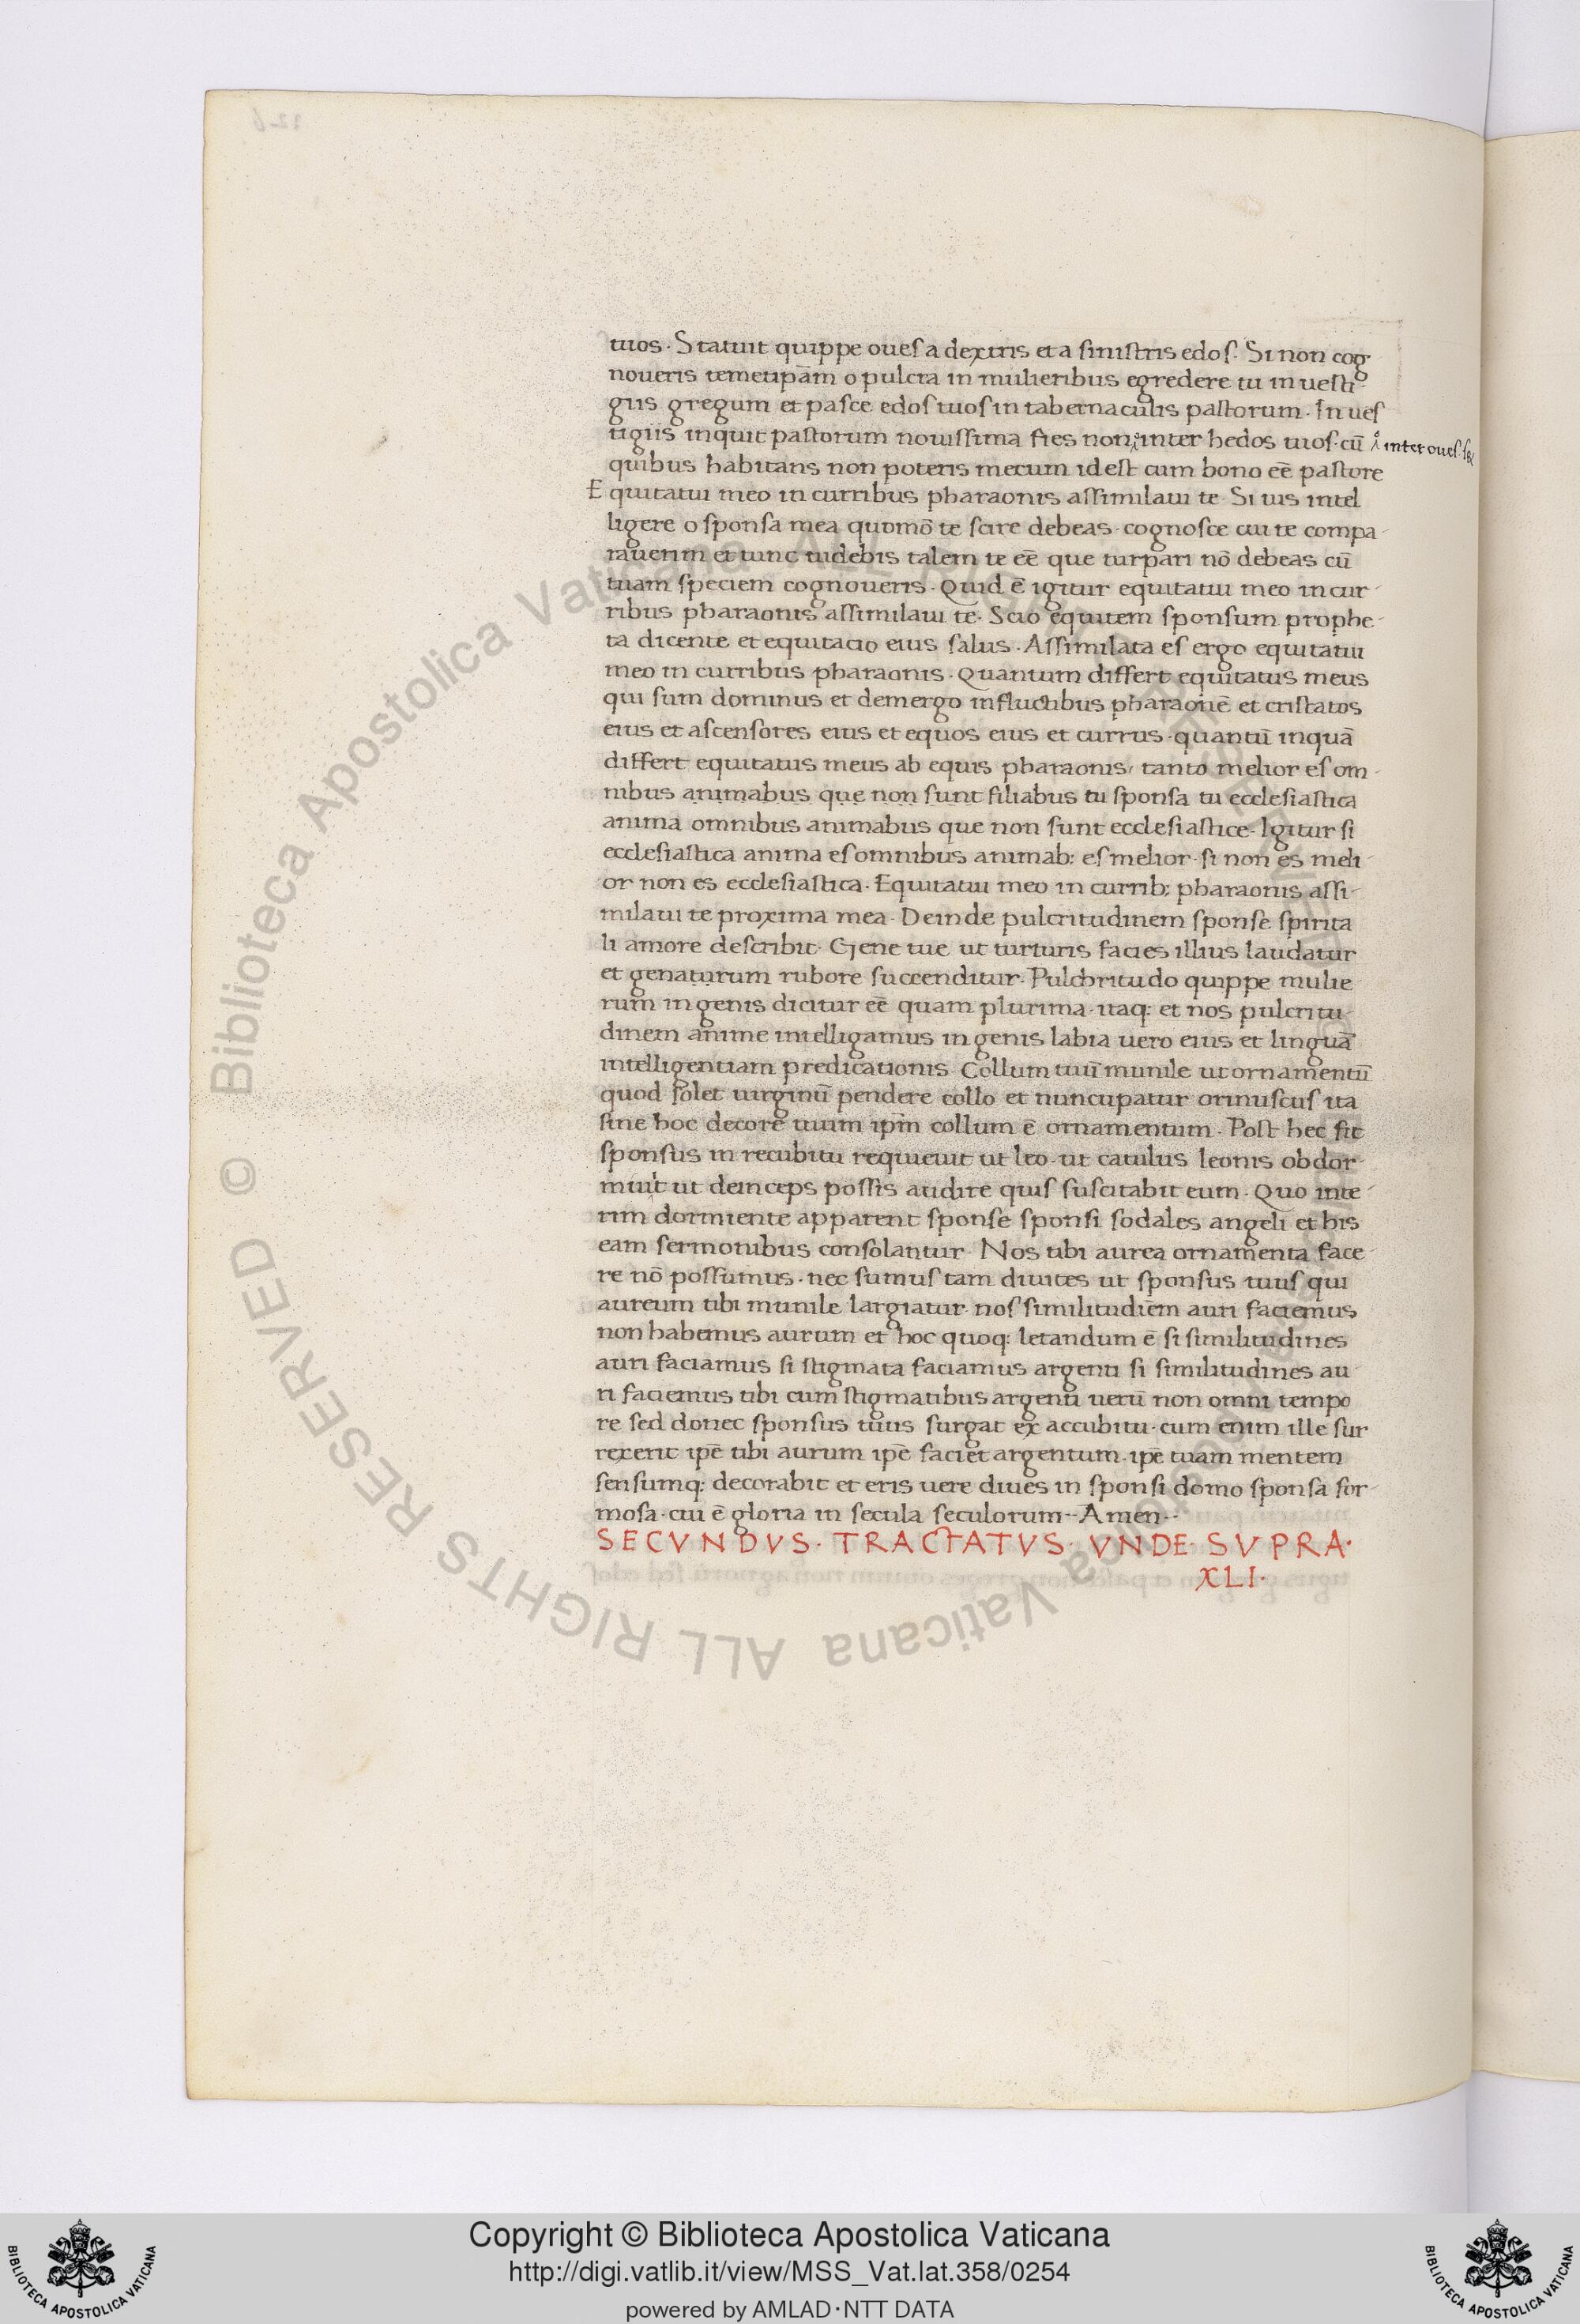 tuos · Statuit quippe oueſ a dextris et a ſiniſtris edoſ · Si non cog
noueris temetip̄am o pulcra in mulieribus egredere tu in ueſti
giis gregum et paſce edoſ tuoſ in tabernaculis paſtorum · In ueſ
tigiis inquit paſtorum nouiſſima fies non inter hedos tuoſ · cū inter oueſ · ſȝ
quibus habitans non poteris mecum id eſt cum bono eē paſtore
E quitatui meo in curribus pharaonis aſſimilaui te · Si uis intel
ligere o ſponſa mea quomō te ſcire debeas · cognoſce cui te compa-
rauerim et tunc uidebis talem te eē que turpari nō debeas cū
tuam ſpeciem cognoueris · Quid ē igitur equitatui meo in cur-
ribus pharaonis aſſimilaui te · Scio equitem ſponſum prophe-
ta dicente et equitacio eius ſalus · Aſſimilata eſ ergo equitatui
meo in curribus pharaonis · Quantum differt equitatus meus
qui ſum dominus et demergo in fluctibus pharaonē et criſtatos
eius et aſcenſores eius et equos eius et currus · quantū inquā
differt equitatus meus ab equis pharaonis, tanto melior eſ om-
nibus animabus que non ſunt filiabus tu ſponſa tu eccleſiaſtica
anima omnibus animabus que non ſunt eccleſiaſtice · Igitur ſi
eccleſiaſtica anima eſ omnibus animab: eſ melior · ſi non es meli-
or non es eccleſiaſtica · Equitatui meo in currib; pharaonis aſſi-
milaui te proxima mea · Deinde pulcritudinem ſponſe ſpirita
li amore deſcribit · Gene tue ut turturis facies illius laudatur
et genaturum rubore ſuccenditur · Pulchritudo quippe mulie
rum in genis dicitur eē quam plurima · itaq: et nos pulcritu-
dinem anime intelligamus in genis labia uero eius et linguā
intelligentiam predicationis Collum tuū munile ut ornamentū
quod ſolet uirginū pendere collo et nuncupatur ormuſcuſ ita
ſine hoc decore tuum ip̄m collum ē ornamentum · Poſt hec fit
ſponſus in recubitu requieuit ut leo · ut catulus leonis obdor-
miuit ut deinceps poſſis audire quiſ ſuſcitabit eum · Quo inte-
rim dormiente apparent ſponſe ſponſi ſodales angeli et his
eam ſermonibus conſolantur · Nos tibi aurea ornamenta face-
re nō poſſumus · nec ſumuſ tam diuites ut ſponſus tuuſ qui
aureum tibi munile largiatur · noſ ſimilitudiēm auri faciemus
non habemus aurum et hoc quoq: letandum ē ſi ſimilitudines
auri faciamus ſi ſtigmata faciamus argenti ſi ſimilitudines au-
ri faciemus tibi cum ſtigmatibus argenti uerū non omni tempo
re ſed donec ſponſus tuus ſurgat ex accubitu · cum enim ille ſur
rexerit ip̄e tibi aurum ip̄e faciet argentum · ip̄e tuam mentem
ſenſumq: decorabit et eris uere diues in ſponſi domo ſponſa for-
moſa · cui ē gloria in ſecula ſeculorum · Amen ·
SECVNDVS · TRACTATVS · VNDE · SVPRA ·
XLI ·
© Biblioteca Apostolica Vaticana ALL RIGHTS RESERVED © Biblioteca Apostolica Vaticana ALL RIGHTS RESERVED
Copyright © Biblioteca Apostolica Vaticana
http://digi.vatlib.it/view/MSS_Vat.lat.358/0254
powered by AMLAD·NTT DATA
BIBLIOTECA APOSTOLICA VATICANA
BIBLIOTECA APOSTOLICA VATICANA